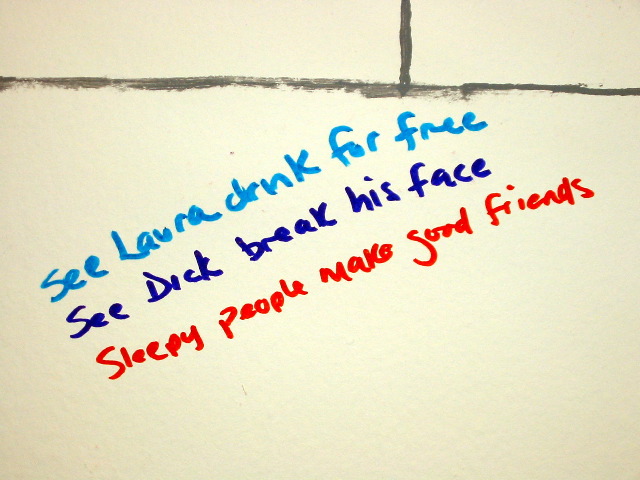 See Laura drink for free
See Dick break his face
Sleepy people make good friends